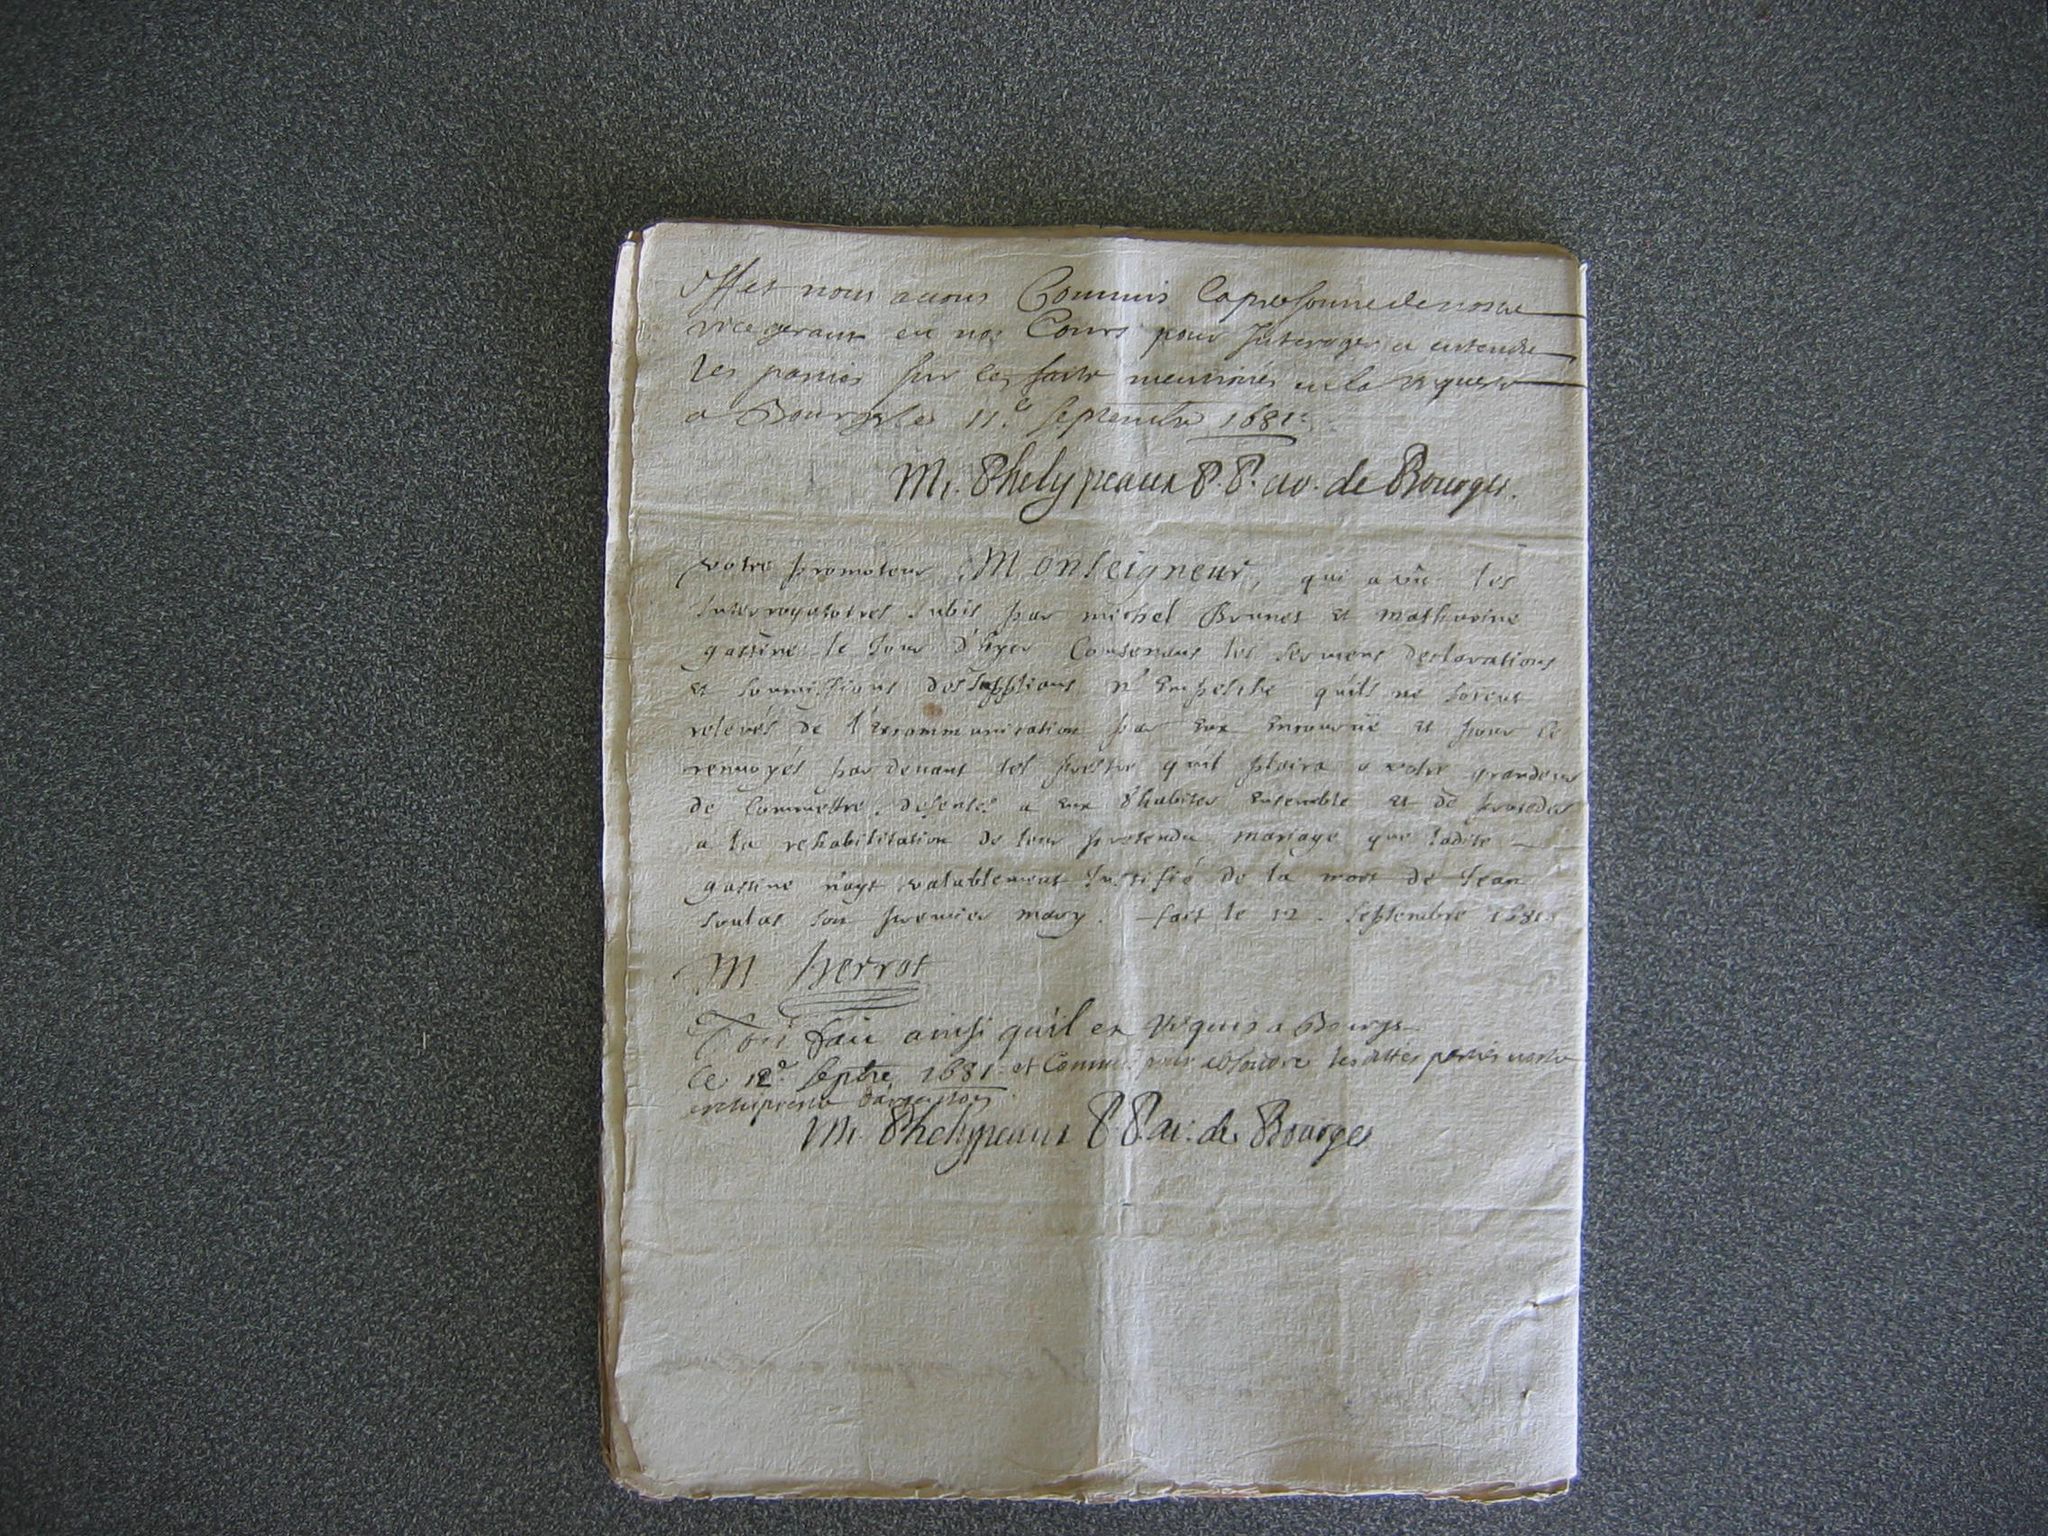 effet nous auons Commis la personne de nostre
vicegerant en nos Cours pour Interoger et entendre
les parties sur les faits mentionés en la requeste
a Bourges le 11.e septembre 1681.
M. Phelypeaux P. P. ar. de Bourges.
votre promoteur Monseigneur, qui a vûe les
Interrogatoires subis par michel Brunet et mathurine
gastine le Jour d'hyer Contenans les sermens declarations
et soumissions des supplians n'Empesche qu'ils ne soient
relevés de l'excommunication par eux encourue et pour ce
renuoyés pardeuant tel prestre qu'il plaira a votre grandeur
de Commettre. defenses a eux d'habiter ensemble et de proceder
a la rehabilitation de leur pretendu mariage que ladite
gastine n'ayt valablement Justifié de la mort de Jean
soulas son premier mary. fait le 12. septembre 1681.
M. perrot
soit fait ainsi qu'il est requis a Bourges
le 12e septre 1681 et Commis pour absoudre lesdittes parties nostre
archiprestre d'argenton
M. Phelypeaux P. P. ar. de Bourges